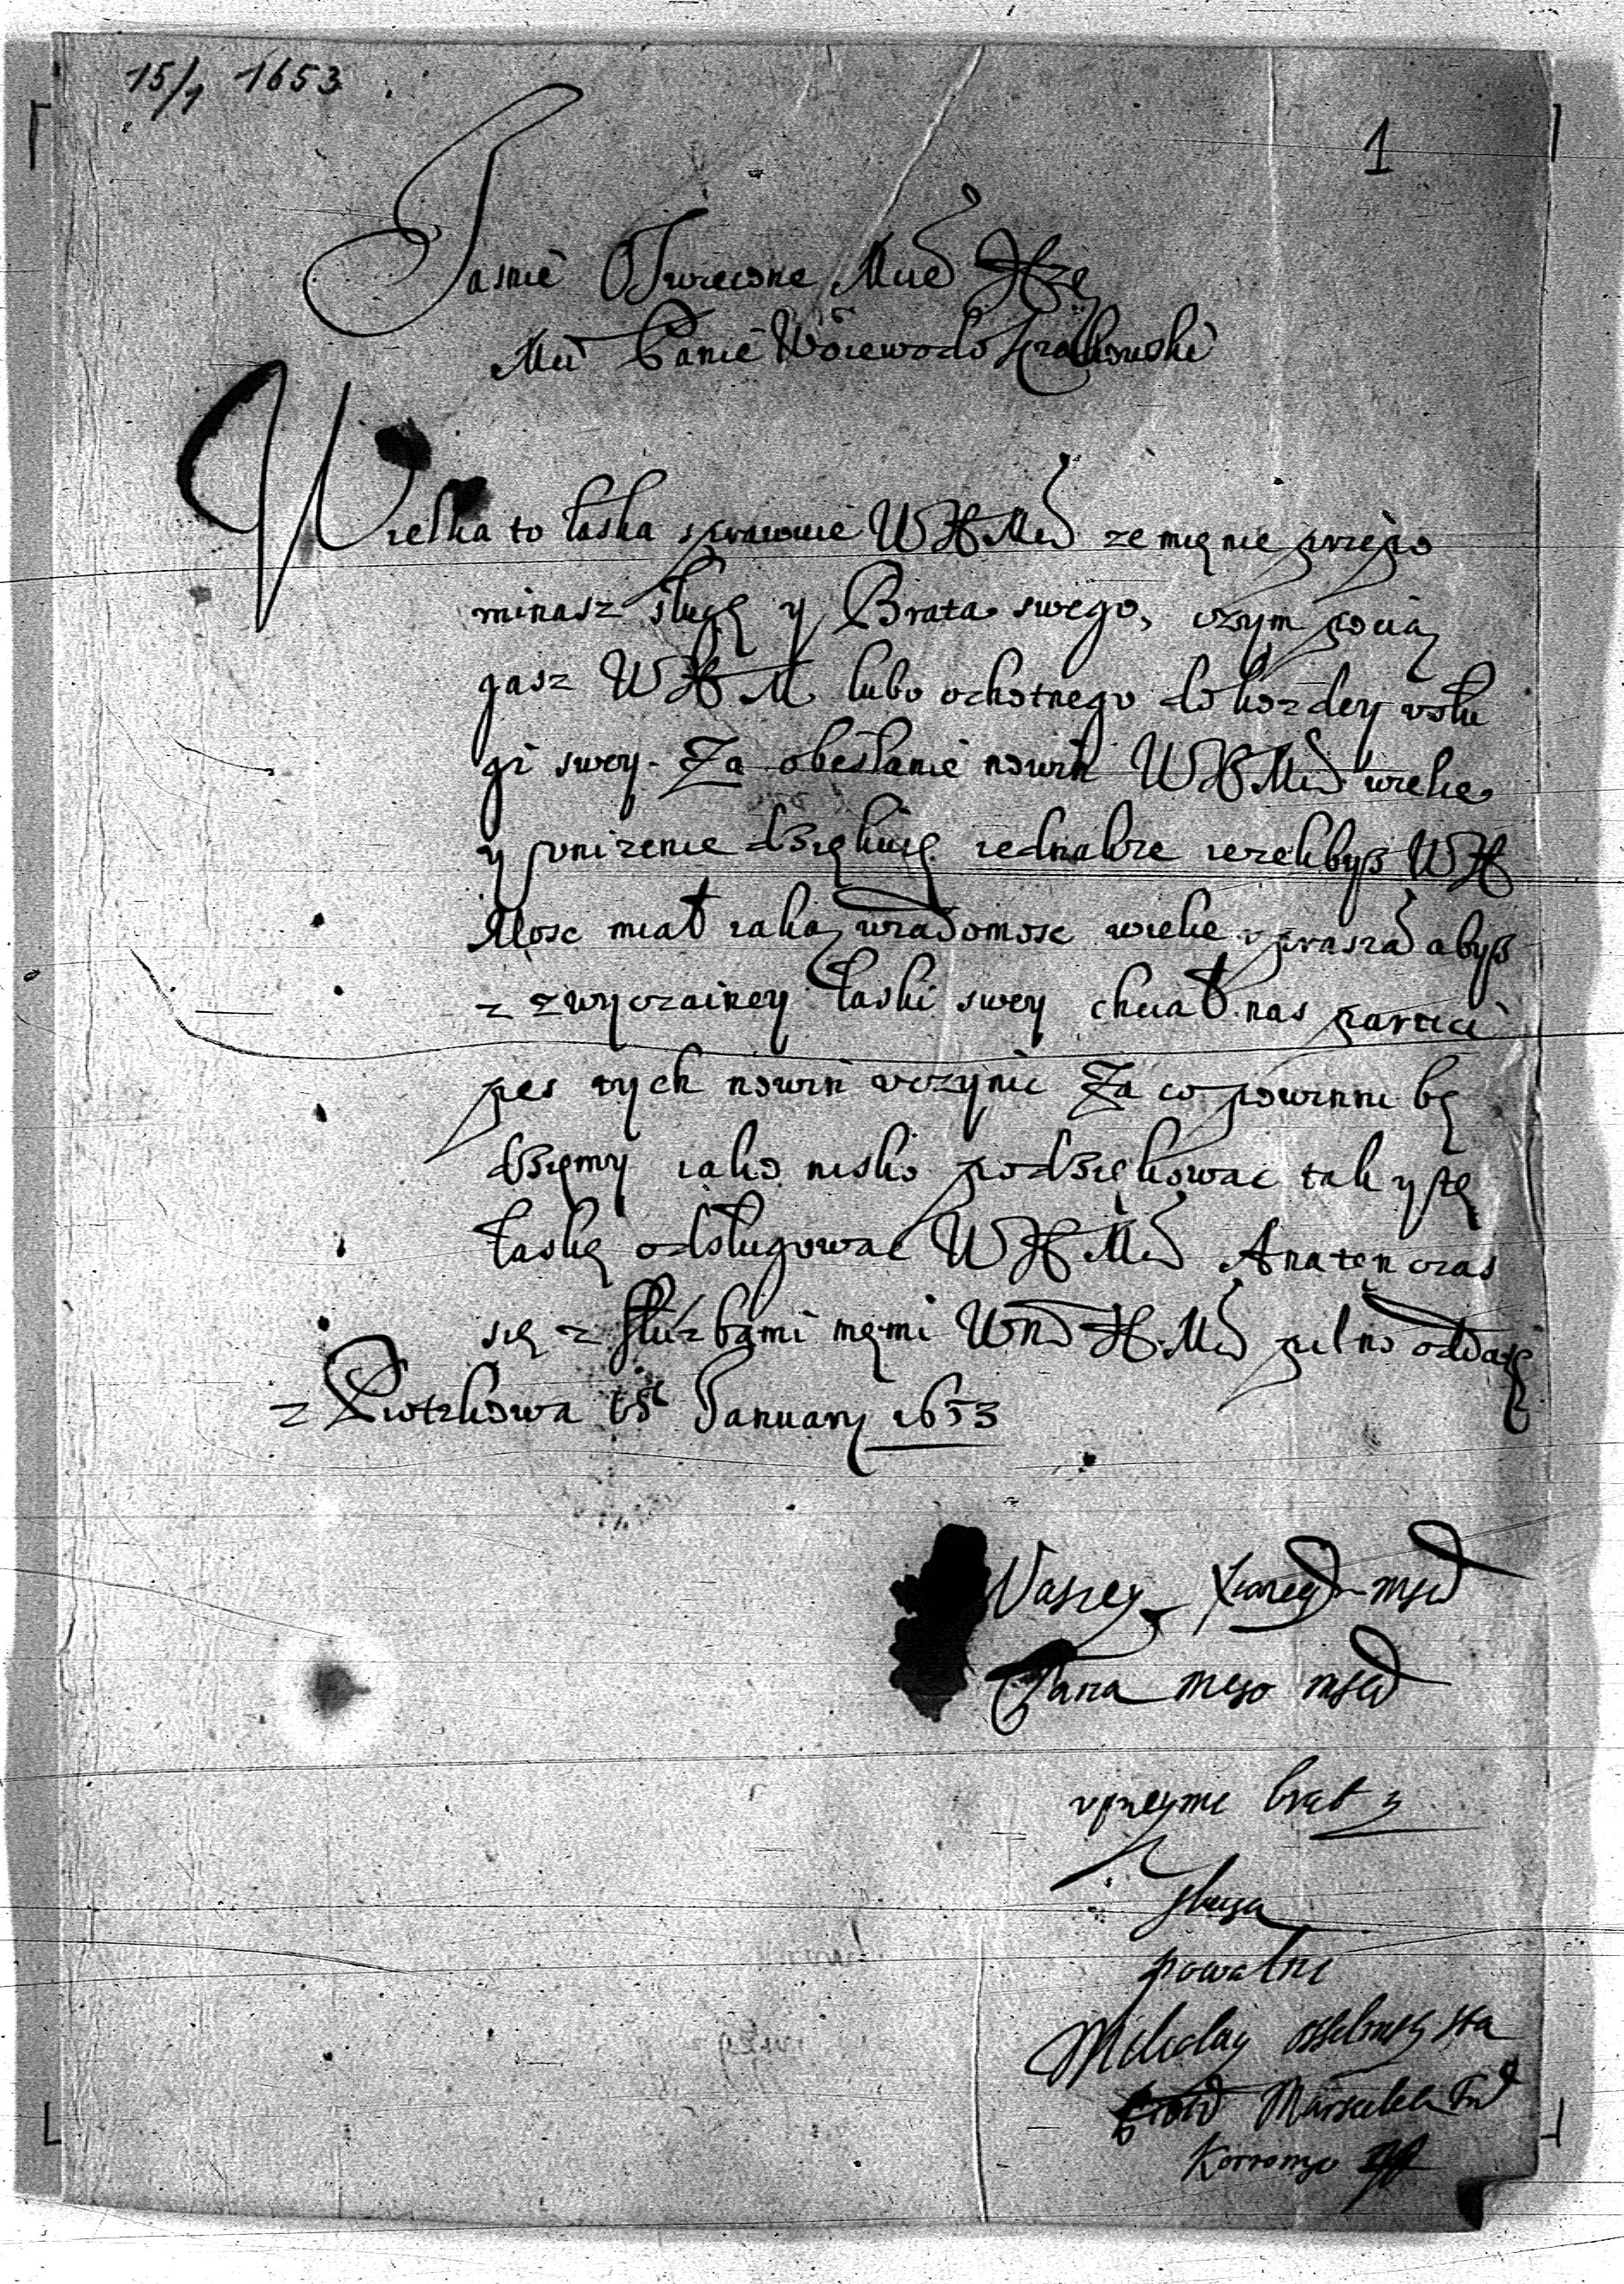 15/1 1653.
1
Jasnie Oswiecone Mcie Xże
Mci Panie Woiewodo Krakowski
Wielka to łaska sprawuie WXMci ze mię nie przepo
minasz sługę y Brata swego, czym pocią
gasz WXM lubo ochotnego do kozdey vsłu
gi swey. Za obesłanie nowin WXMci wielce
y vnizenie dzięnkuię iednakze iezelibyś WX
Mosc miał iaką wiadomosc wielce vpraszam abyś
z zwyczainey łaski swey chciał nas partici
pes tych nowin vczynic Za co powinni bę
dziemy iako nisko podziękowac tak y tę
łaskę odsługowac WXMci A na ten czas
się z słuzbami memi WM XMci pilno oddaię
z Piotrkowa 15 January 1653
Vaszey Xiazey msci
Pana mego msci
vprzeymi brat y
sługa
powolni
Mikołay Ostroróg
Marszałek